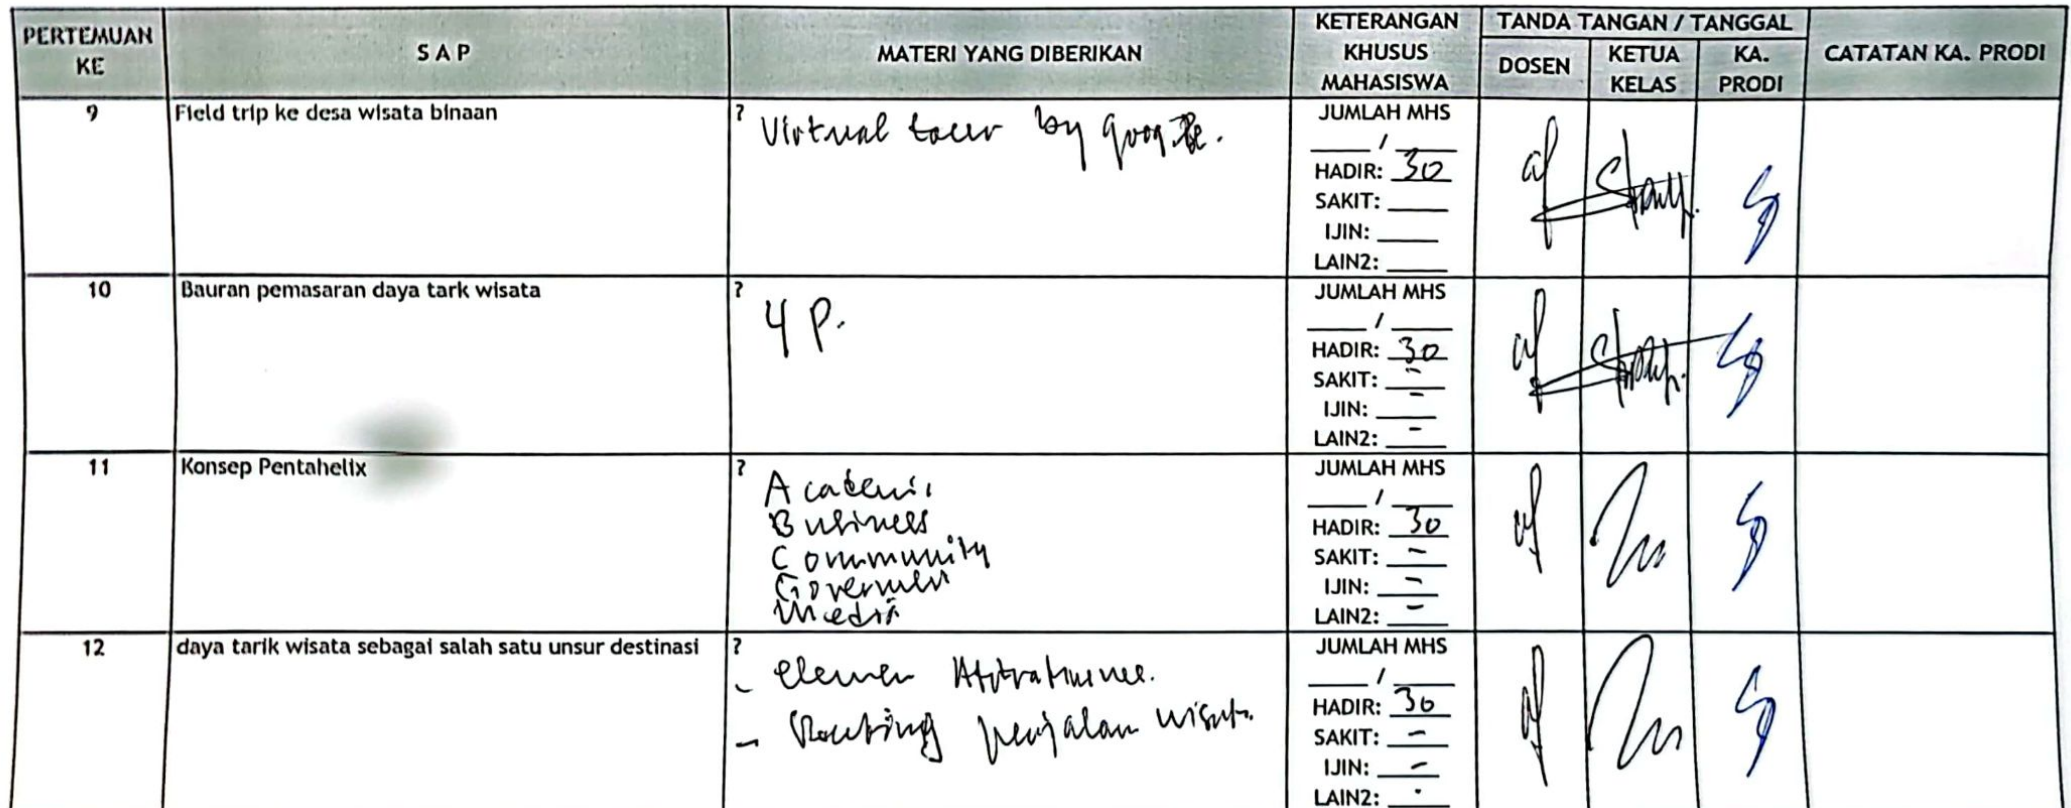 PERTEMUAN KE
S A P
MATERI YANG DIBERIKAN
KETERANGAN KHUSUS MAHASISWA
TANDA TANGAN / TANGGAL
DOSEN
KETUA KELAS
KA. PRODI
CATATAN KA. PRODI
9
Field trip ke desa wisata binaan
?
Virtual tour by google.
JUMLAH MHS
___ / ___
HADIR: 30
SAKIT: ___
IJIN: ___
LAIN2: ___
10
Bauran pemasaran daya tark wisata
?
4 P.
JUMLAH MHS
___ / ___
HADIR: 30
SAKIT: -
IJIN: -
LAIN2: -
11
Konsep Pentahelix
?
Academi
Business
Community
Government
Media
JUMLAH MHS
___ / ___
HADIR: 30
SAKIT: -
IJIN: -
LAIN2: -
12
daya tarik wisata sebagai salah satu unsur destinasi
?
- elemen
- Routing perjalan wisata
JUMLAH MHS
___ / ___
HADIR: 30
SAKIT: -
IJIN: -
LAIN2: -